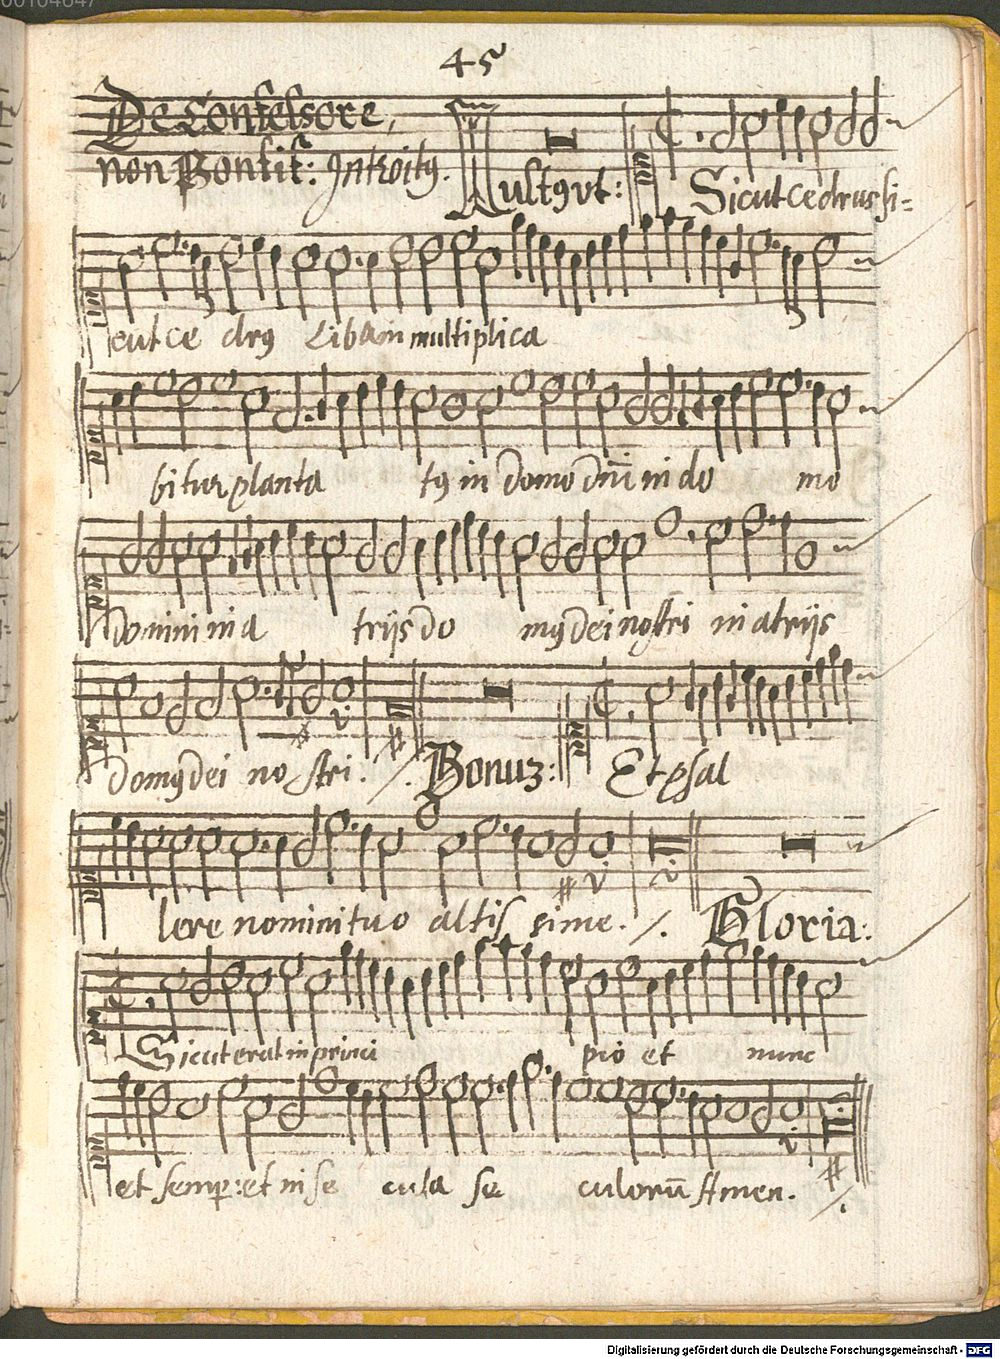 00104647
45
De Confessore,
non Pontif: Introitꝰ. Iustꝰ vt: Sicut cedrus si=
cut ce drꝰ Libani multiplica
bitur planta tꝰ in domo dni in do mo
domini in a trijs do mꝰ dei nostri in atrijs
domꝰ dei no stri. Bonuz: Et psal
lere nomini tuo altis sime. Gloria:
Sicut erat in princi pio et nunc
et semp: et in se cula se culorū Amen.
Digitalisierung gefördert durch die Deutsche Forschungsgemeinschaft - DFG